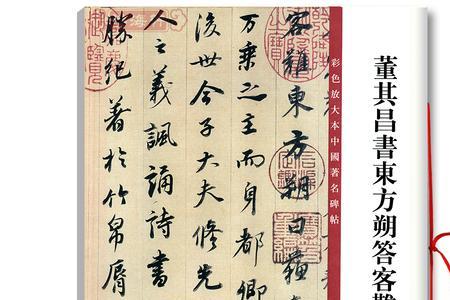 董其昌書東方朔答客難
彩色放大本中國著名碑帖
客難東方朔曰蘇
萬乘之主而身都卿
後世今子大夫修先
人之義諷誦詩書
勝紀著於竹帛脣